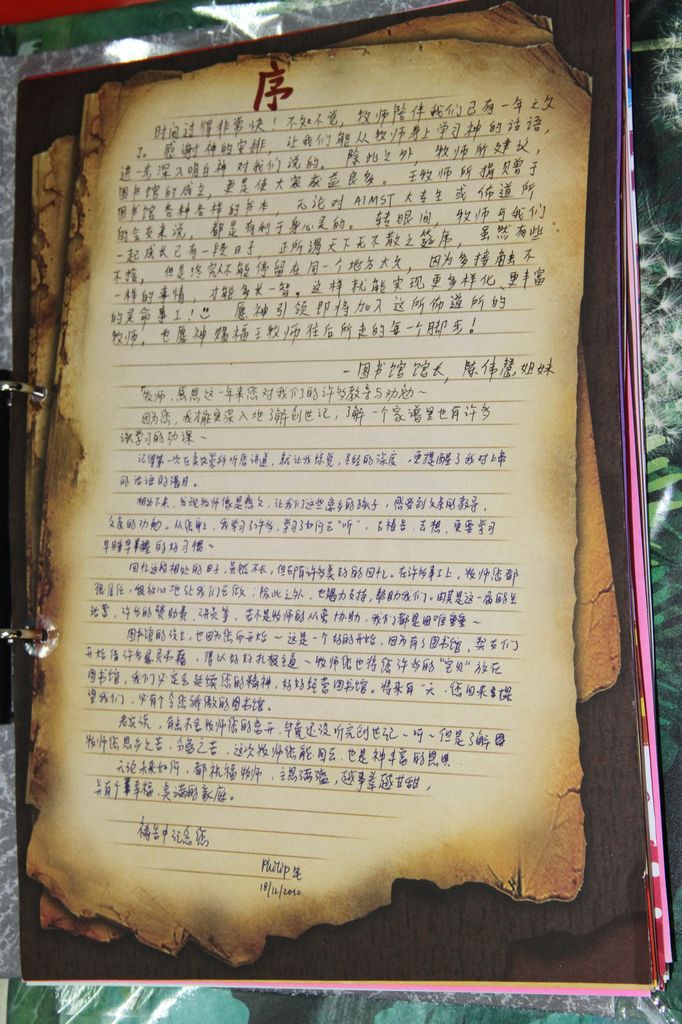 序
时间过得非常快！不知不觉，牧师陪伴我们已有一年之久
了。感谢神的安排，让我们能从牧师身上学习神的话语，
进一步深入明白神对我们说的。除此之外，牧师所建议，
图书馆的成立，更是使大家获益良多。王牧师所捐赠于
图书馆各种各样的书本，无论对AIMST大专生或布道所
的会友来说，都是有利于身心灵的。转眼间，牧师与我们
一起成长已有一段日子，正所谓天下无不散之筵席，虽然有些
不舍，但是终究不能停留在同一个地方太久，因为多接触不
一样的事情，才能多长一智。这样就能实现更多样化、更丰富
的生命事工！愿神引领即将加入这所布道所的
牧师，也愿神赐福王牧师往后所走的每一个脚步！
-图书馆馆长，陈伟慧姐妹
牧师，感恩这一年来您对我们的许多教导与劝勉~
因为您，我才能更深入地了解创世记，了解一个家谱里也有许多
该学习的功课~
记得第一次在美农崇拜听您讲道，就让我惊觉，圣经的深度，更提醒了我对上帝
的话语的渴目。
相处下来，发现牧师像是慈父，让我们这些离乡的孩子，感受到父亲的教导，
父亲的劝勉。从您身上，我学习了许多，学习了如何去“听”，去祷告，去想，更要学习
早睡早起的好习惯~
回忆这段相处的日子，虽然不长，但却有许多美好的回忆。在许多事工上，牧师您都
很信任，很放心地让我们去做；除此之外，也竭力支持，帮助我们。由其是这一届的生
活营，许多的赞助费、讲员等，若不是牧师的从旁协助，我们都是困难重重~
图书馆的设立，也因为您而开始~这是一个好的开始，因为有了图书馆，契友们
开始借许多属灵书籍，得以好好扎根真道~牧师您也将您许多的“宝贝”放在
图书馆，我们必定会延续您的精神，好好经营图书馆。将来有一天，您回来探
望我们，必有个令您骄傲的图书馆。
老实说，有些不舍牧师您的离开，毕竟还没听完创世记~呀~但是了解
牧师您思乡之苦，分离之苦，这次牧师您能回去，也是神丰富的恩典
无论未来如何，都祝福牧师，主恩满溢，越事奉越甘甜，
与有个幸福，美满的家庭。
祷告中记念您
Philip 笔
18/12/2010